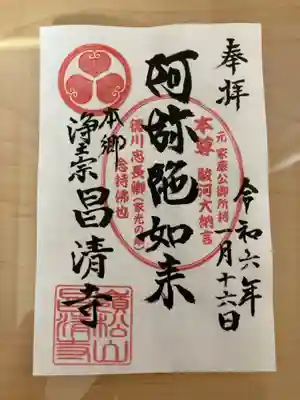 奉拝
令和六年
一月十六日
元家康公御所持
本尊 駿河大納言
徳川忠長卿(家光の弟)
念持佛也
阿弥陀如来
本郷
浄土宗昌清寺